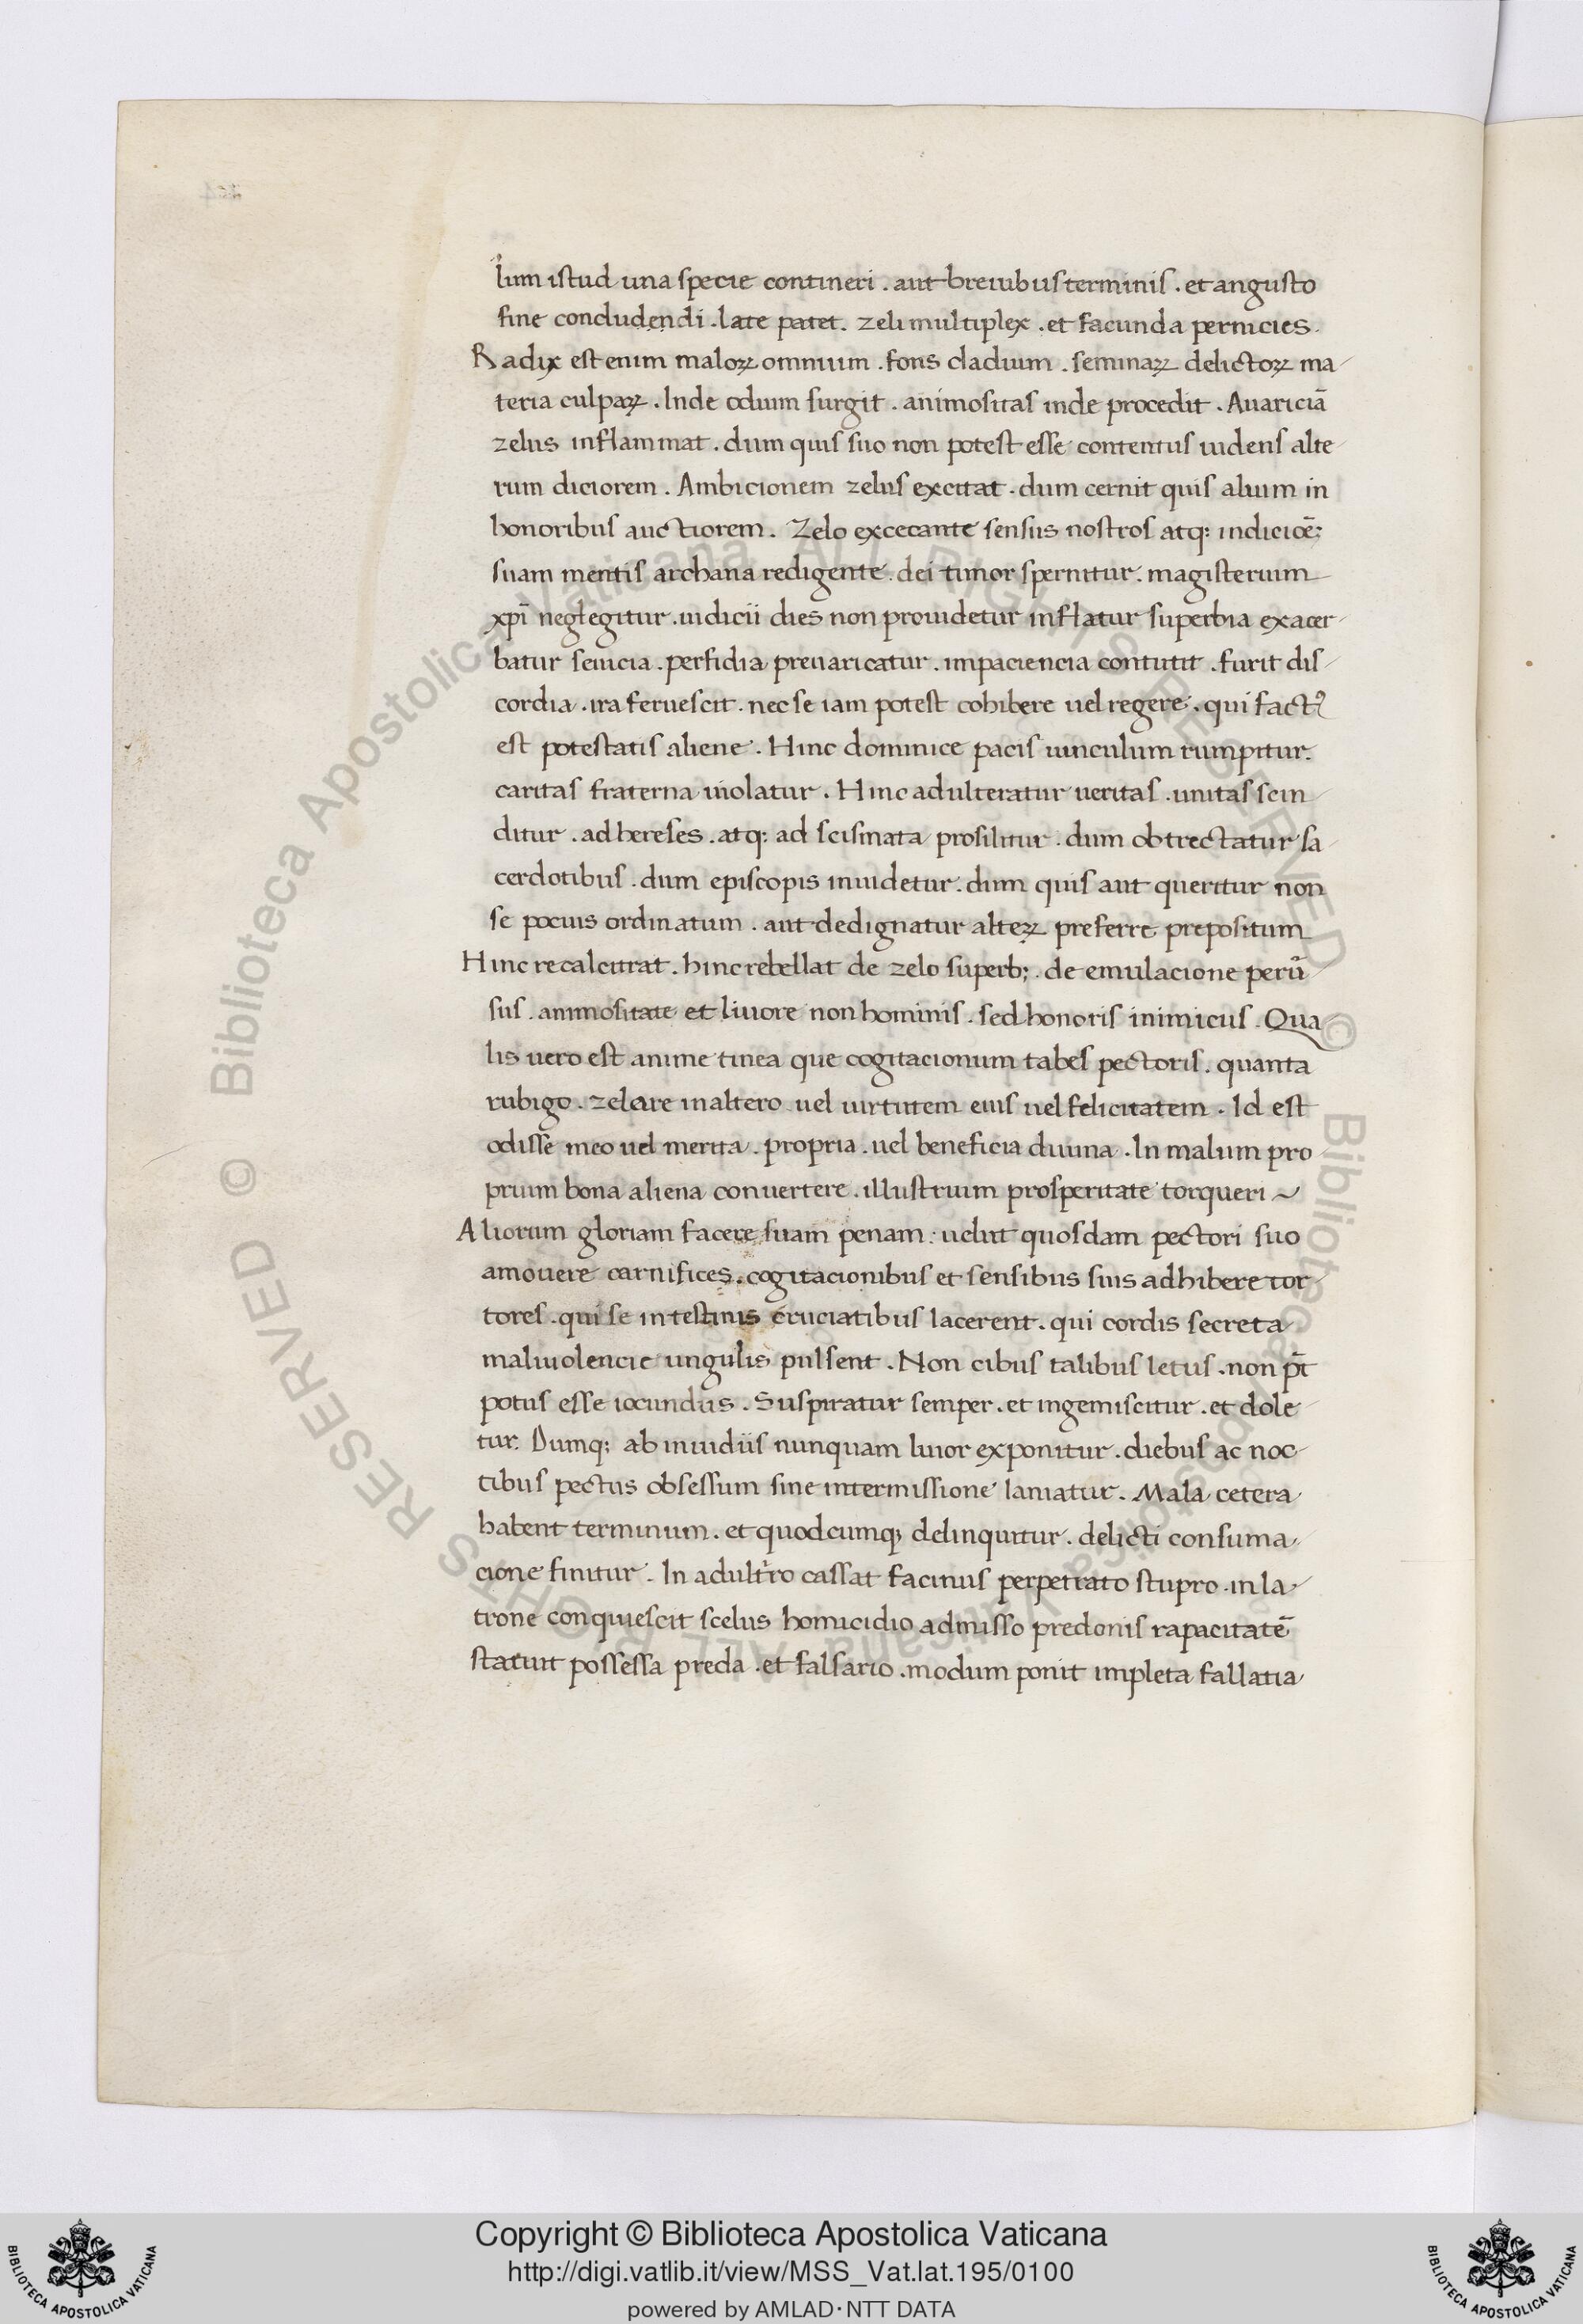 lum istud una specie contineri . aut breuibus terminis . et angusto
fine concludendi . late patet . zeli multiplex . et facunda pernicies .
Radix est enim maloꝝ omnium . fons cladium . seminaꝝ delictoꝝ ma-
teria culpaꝝ . Inde odium surgit . animositas inde procedit . Auariciā
zelus inflammat . dum quis suo non potest esse contentus uidens alte-
rum diciorem . Ambicionem zelus excitat . dum cernit quis alium in
honoribus auctiorem . Zelo excecante sensus nostros atq:
suam mentis archana redigente . dei timor spernitur . magisterium
xp̄i neglegitur . iudicii dies non prouidetur inflatur superbia exacer-
batur seuicia . perfidia preuaricatur . impaciencia contutit . furit dis-
cordia . ira feruescit . nec se iam potest cohibere uel regere . qui factꝰ
est potestatis aliene . Hinc dominice pacis uinculum rumpitur .
caritas fraterna uiolatur . Hinc adulteratur ueritas . unitas scin-
ditur . ad hereses . atq: ad scismata prosilitur . dum obtrectatur sa-
cerdotibus . dum episcopis inuidetur . dum quis aut queritur non
se pocius ordinatum . aut dedignatur alteꝝ preferre prepositum
Hinc recalcitrat . hinc rebellat de zelo superb; . de emulacione perū-
sus . animositate et liuore non hominis . sed honoris inimicus . Qua-
lis uero est anime tinea que cogitacionum tabes pectoris . quanta
rubigo . zelare in altero uel uirtutem eius uel felicitatem . Id est
odisse meo uel merita . propria . uel beneficia diuina . In malum pro-
prium bona aliena conuertere . illustrium prosperitate torqueri ~
Aliorum gloriam facere suam penam : uelut quosdam pectori suo
amouere carnifices . cogitacionibus et sensibus suis adhibere tor-
tores . qui se intestinis cruciatibus lacerent . qui cordis secreta
maliuolencie ungulis pulsent . Non cibus talibus letus . non pt̄
potus esse iocundus . Suspiratur semper . et ingemiscitur . et dole-
tur . Dumq; ab inuidiis nunquam liuor exponitur . diebus ac noc-
tibus pectus obsessum sine intermissione laniatur . Mala cetera
habent terminum . et quodcumq; delinquitur . delicti consuma-
cione finitur . In adultro cassat facinus perpetrato stupro . in la-
trone conquiescit scelus homicidio admisso predonis rapacitatē
statuit possessa preda . et falsario . modum ponit impleta fallatia
Copyright © Biblioteca Apostolica Vaticana
http://digi.vatlib.it/view/MSS_Vat.lat.195/0100
powered by AMLAD·NTT DATA
BIBLIOTECA APOSTOLICA VATICANA
BIBLIOTECA APOSTOLICA VATICANA
© Biblioteca Apostolica Vaticana ALL RIGHTS RESERVED
© Biblioteca Apostolica Vaticana ALL RIGHTS RESERVED